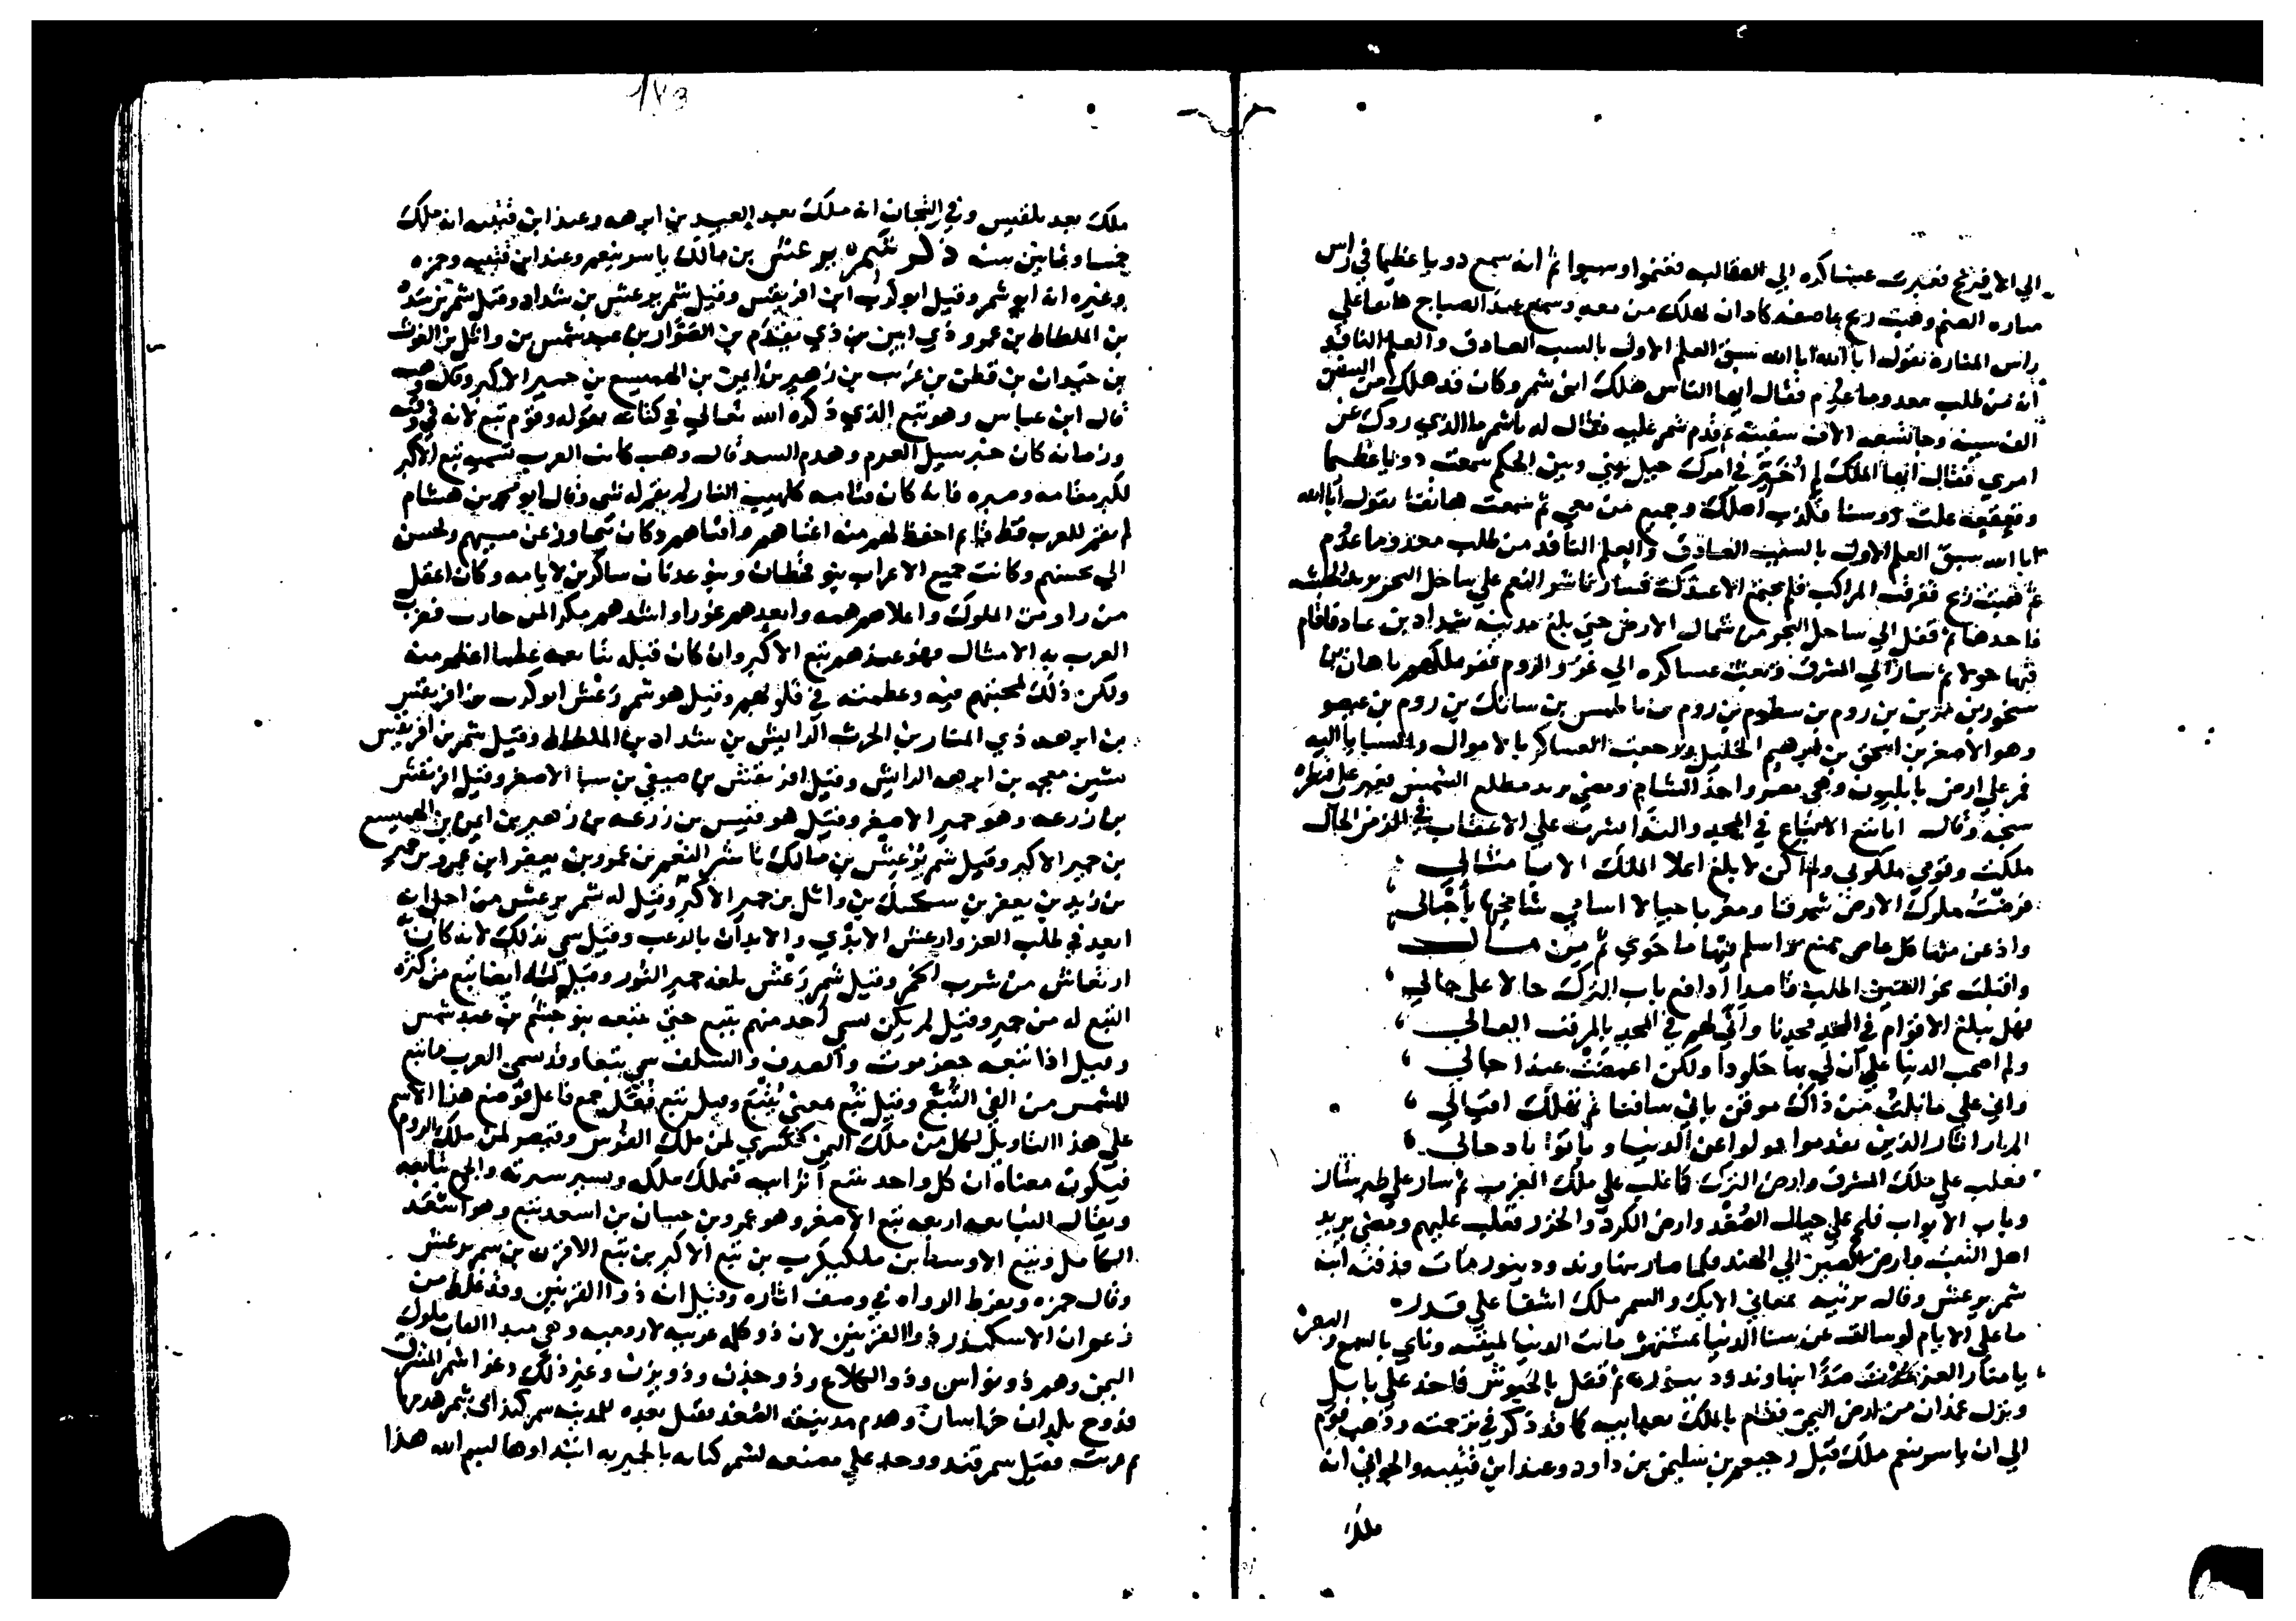 الي الافرنج فعبرت عساكره الي الصقالبه فغنموا وسبوا ثم انه سمع دويا عظيما في راس
مناره الصنم وهبت ريح عاصفه كاد ان يهلك من معه وسمع عند الصباح هاتفا علي
راس المناره يقول ابا الله ابا الله سبق العلم الاول بالسبب الصادق والعلم النافد
ان من طلب معدوما عدم فقال ايها الناس هلك ابني شمر وكان قد هلك من السفن
الف سفينه وما تبعه الا سفينته فقدم شمر عليه فقال له يا شمر ما الذي روك عن
امري فقال ايها الملك لم في امرك حيل بيني وبين الحكم سمعت دويا عظيما
وقعقعه علت روسنا فكدت اهلك وجميع من معي ثم سمعت هاتفا يقول ابا الله
ابا الله سبق العلم الاول بالسبب الصادق والعلم النافد من طلب معدوما عدم
ثم هبت ريح ففرقت المراكب فلم تجتمع الا عندك فسار ناشر النعم علي ساحل البحر يريد الحبشه
فاخدها ثم قفل الي ساحل البحر من شمال الارض حتي بلغ مدينه شداد بن عاد فاقام
فيها حولا ثم سار الي المشرق وبعث عساكره الي غزو الروم ملكهم باهان بن
سحور بن مدين بن روم بن سطوم بن روم بن ناطس بن سانك بن روم بن عيصو
وهو الاصغر بن اسحق بن ابرهيم الخليل ورجعت العساكر بالاموال والسبايا اليه
فمر علي ارض بابليون وهي مصر واخذ الشام ومضي يريد مطلع الشمس فعبر علي قنطره
سنجه وقال انا تبع الاتباع في المجد والندا شربت علي الاعقاب في الزمن الخال
ملكت وقومي ملكوني ولم اكن لابلغ اعلا الملك الا بامثالي
فرضت ملوك الارض شرقا ومغربا جبالا اسامي شامخها باجبالي
واذعن منها كل عاص ممنع واسلم فيها ما حوي ثم من مال
واقبلت نحو الصين اطلب قاصدا ادافع باب الترك حالا علي حالي
فهل يبلغ الاقوام في المجد مجدنا واني لهم في المجد بالمرقب العالي
ولم اصحب الدنيا علي ان لي بها خلودا ولكن اعرضت عندا حالي
واني علي ما نلت من ذاك موقن باني سافنا ثم تهلك اقيالي
الم ار اثار الذين تقدموا تولوا عن الدنيا وبانوا بادحالي
فغلب علي ملك المشرق وارض الترك كما غلب علي ملك الغرب ثم سار علي طبرستان
وباب الابواب فلج علي جبال الصغد وارض الكرد والخزر فغلب عليهم ومضي يريد
اهل التبت وارض الصين الي الهند فلما صار بنهاوند ودينور مات فدفنه ابنه
شمر يرعش وقال يرثيه بمعاني الايك والسمر ملك اشفا علي قدره
ما علي الايام لو سالت عن سنا الدنيا لميته وناي بالسمع والبصر
يا منار العز بنهاوند ودينور ثم قفل بالجيوش فاخد علي بابل
ونزل غمدان من ارض اليمن فقام بالملك بعد ابيه كما قد ذكر في ترجمته وذهب قوم
الي ان ياسر ينعم ملك قبل رحبعم بن سليمن بن داود وعند ابن قتيبه والحواني انه
ملك
ملك بعد بلقيس وفي التيجان انه ملك بعد العبد بن ابرهه وعند ابن قتيبه انه ملك
خمسا وثمانين سنه ذكر شمر يرعش بن مالك ياسر ينعم وعند ابن قتيبه وحمزه
وغيره انه ابو شمر وقيل ابو كرب ابن افريقس وقيل شمر يرعش بن شداد وقيل شمر بن شداد
بن الملطاط بن عمرو ذي ابين بن ذي يقدم بن الصوار بن عبد شمس بن وائل بن الغوث
بن حيدان بن قطن بن عريب بن زهير بن ايمن بن الهميسع بن حمير الاكبر وقال وهب
قال ابن عباس وهو تبع الذي ذكره الله تعالي في كتابه بقوله وقوم تبع لانه في وقته
وزمانه كان خبر سيل العرم وهدم السد قال وهب كانت العرب تسميه تبع الاكبر
لكبر مقامه وصبره فانه كان مقامه كلهيب النار لم يقم له شي وقال ابو محمد بن هشام
لم يقم للعرب قط قايم احفظ لهم منه اغناهم واقناهم وكان يتجاوز عن مسيهم ويحسن
الي محسنهم وكانت جميع الاعراب بنو قحطان وبنو عدنان شاكرين لايامه وكان اعقل
من راو من الملوك واعلاهم همه وابعدهم غورا واشدهم مكرا لمن حارب فضرب
العرب به الامثال فهو عندهم تبع الاكبر وان كان قبله تبابعه عظما اعظم منه
ولكن ذلك لمحبتهم فيه وعظمته في قلوبهم وقيل هو شمر رعش ابو كرب بن افريقس
بن ابرهه ذي المنار بن الحرث الرايش بن شداد بن الملطاط وقيل شمر بن افريقس
بن ابرهه الرايش وقيل افريقس بن صيفي بن سبا الاصغر وقيل افريقس
بن زرعه وهو حمير الاصغر وقيل هو قيس بن زرعه بن زهير بن ايمن بن الهميسع
بن حمير الاكبر وقيل شمر يرعش بن مالك ناشر النعم بن عمرو بن يعفر ابن عمرو بن حمير
بن زيد بن يعفر بن سكسك بن وائل بن حمير الاكبر وقيل له شمر يرعش من اجل انه
ابعد في طلب العز وارعش الايدي والابدان بالرعب وقيل سمي بذلك لانه كان به
ارتعاش من شرب الخمر وقيل شمر رعش بلغه حمير الثور وقيل له ايضا تبع من كثره
التبع له من حمير وقيل لم يكن يسمي احد منهم بتبع حتي يتبعه بنو جشم بن عبد شمس
وقيل اذا تبعه حضرموت والصدف والسلف سمي تبعا وقد سمي العرب ما تتبع
للشمس من الفي التبع وقيل تبع بمعني يتبع وقيل تبع فعل جمع فاعل فوضع هذا الاسم
علي هذا التاويل لكل من ملك اليمن ككسري لمن ملك الفرس وقيصر لمن ملك الروم
فيكون معناه ان كل واحد تبع اترابه فملك ملكه وسير سيرته والجمع تبابعه
ويقال التبابعه اربعه تبع الاصغر وهو عمرو بن حسان بن اسعد تبع وهو اسعد
الكامل وتبع الاوسط بن ملكيكرب بن تبع الاكبر بن تبع الاقرن بن شمر يرعش
وقال حمزه وتفرط الرواه في وصف اثاره وقيل انه ذو القرنين وقد غلط من
زعم ان الاسكندر ذوا القرنين لان ذو كلمه عربيه لا روميه وهي مبدا القاب ملوك
اليمن وهم ذو نواس وذو الكلاع وذو جدن وذو يزن وغير ذلك وغزا شمر المشرق
فدوخ بلدان خراسان وهدم مدينه الصغد فقيل بعده للمدينه شمر كند اي شمر هدمها
ثم عربت فقيل سمرقند ووجد علي مصنعه لشمر كتابه بالحميريه ابتداوها لبسم الله هذا